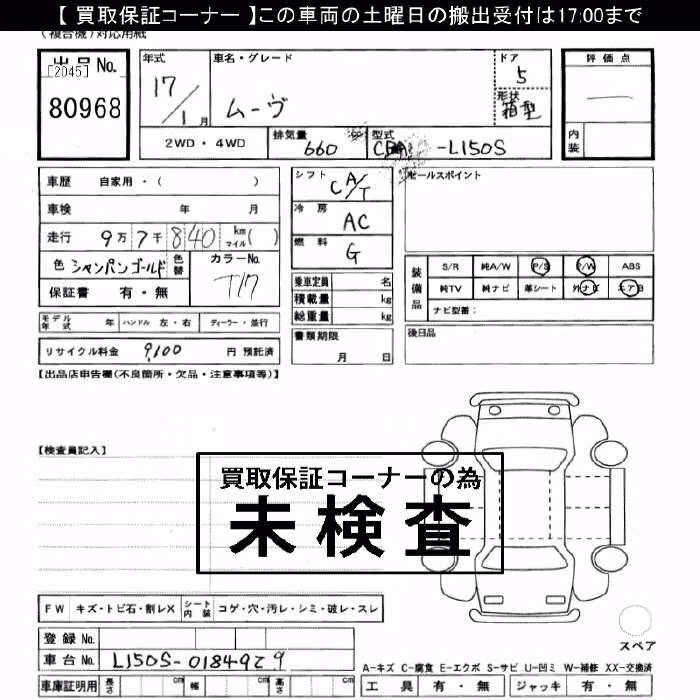 【 買取保証コーナー 】この車両の土曜日の搬出受付は17:00まで
(複合機)対応用紙
出品 No.
[2045]
80968
年式
17/1月
車名・グレード
ムーヴ
ドア
5
形状
箱型
評価点
—
内装
2WD・4WD
排気量
660 cc
型式
CBA-L150S
車歴 自家用・( )
車検 年 月
走行 9万7千840 km マイル( )
色 シャンパンゴールド
色替
カラーNo.
T17
保証書 有・無
モデル年式 年 ハンドル 左・右 ディーラー・並行
リサイクル料金 9,100 円 預託済
シフト
CA/T
冷房
AC
燃料
G
乗車定員 名
積載量 kg
総重量 kg
書類期限
月 日
セールスポイント
装備品
S/R 純A/W P/S P/W ABS
純TV 純ナビ 革シート 外ナビ エアB
ナビ型番:
後日品
【出品店申告欄(不良箇所・欠品・注意事項等)】
【検査員記入】
買取保証コーナーの為
未検査
FW キズ・トビ石・割レX
シート内装
コゲ・穴・汚レ・シミ・破レ・スレ
登録 No.
車台 No. L150S-0184929
車庫証明用 長さ cm 幅 cm 高さ cm
スペア
A-キズ C-腐食 E-エクボ S-サビ U-凹ミ W-補修 XX-交換済
工具 有・無 ジャッキ 有・無